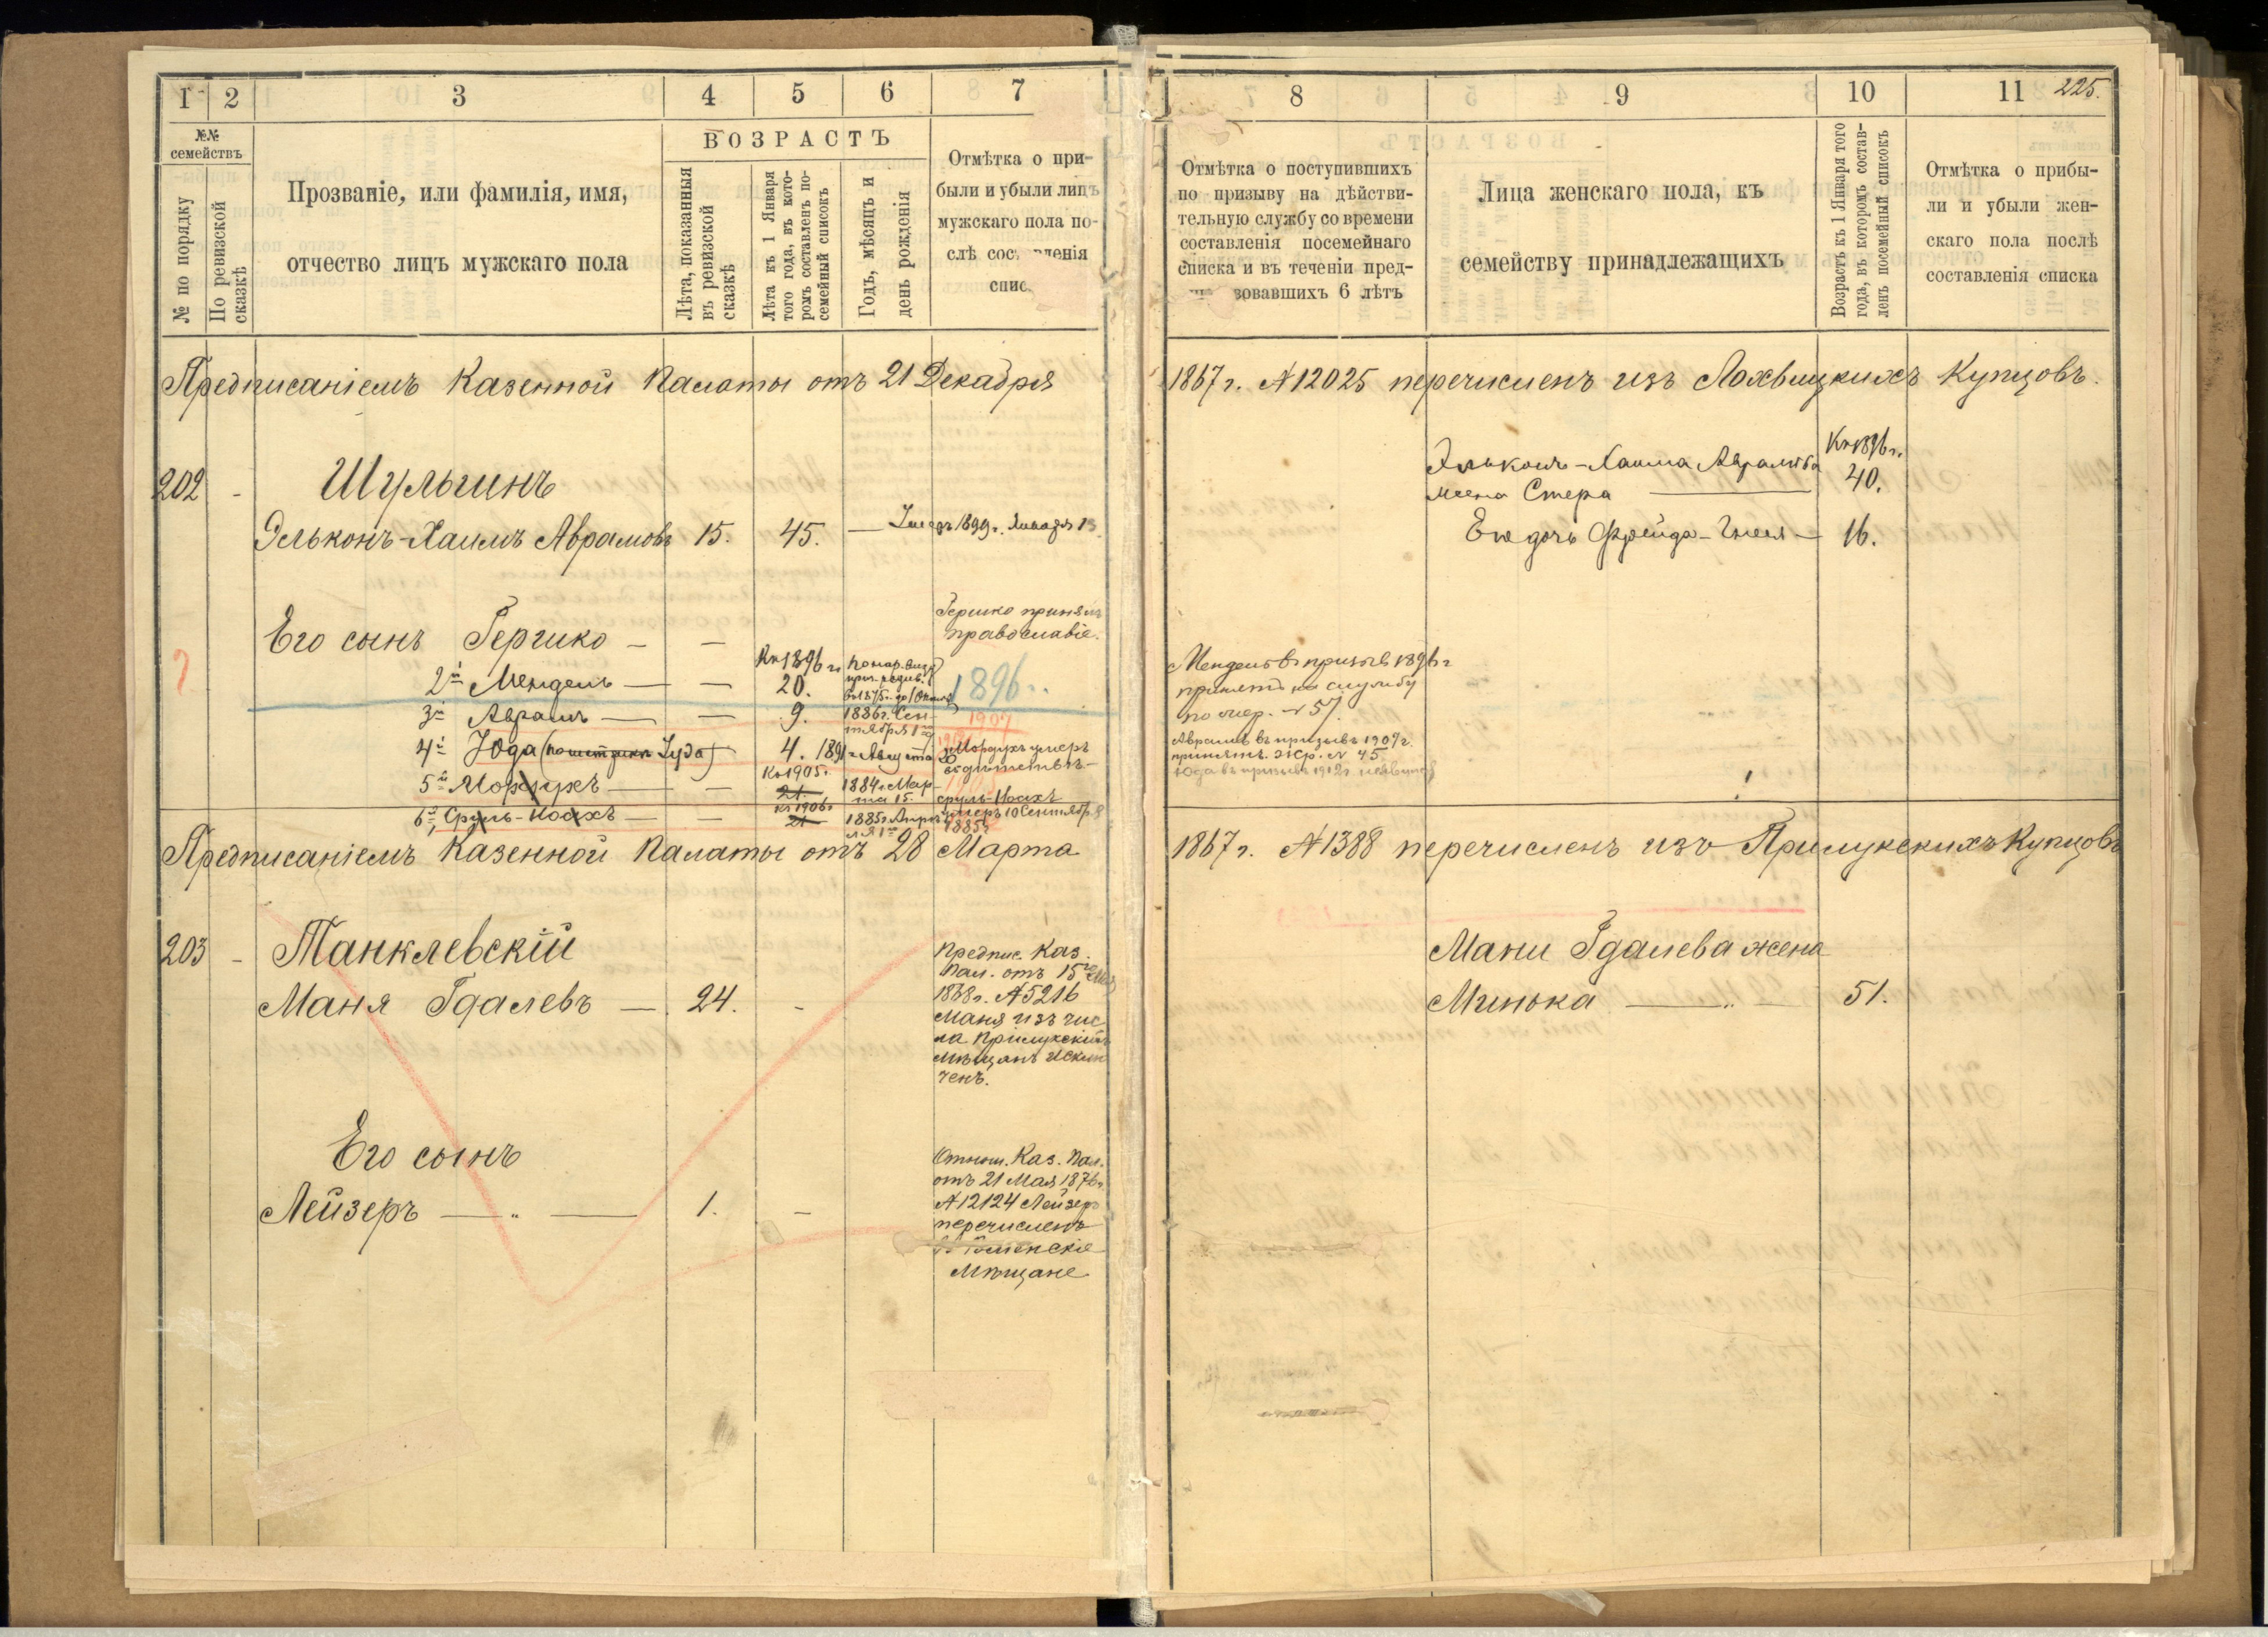 1 2 3 4 5 6 7
№№ семействъ
№ по порядку
По ревизской сказкѣ
Прозваніе, или фамилія, имя,
отчество лицъ мужскаго пола
ВОЗРАСТЪ
Лѣта, показанныя
въ ревизской
сказкѣ
Лѣта къ 1 Января
того года, въ кото-
ромъ составленъ по-
семейный списокъ
Годъ, мѣсяцъ и
день рожденія
Отмѣтка о при-
были и убыли лицъ
мужскаго пола по-
слѣ
спис
Предписаніемъ Казенной Палаты отъ 21 Декабря
202 - Шульгинъ
Эльконъ-Хаимъ Аврамовъ 15. 45. — Умеръ 1899 г. Января
Его сынъ Гершко — —
Гершко принялъ
православіе.
Къ 1896 г.
2й Мендель — — 20.
1896 г.
3й Аврамъ — — 9. 1886 г. Сен-
тября 1го
1907
4й Юда ( Іуда) 4. 1891 г. Августа 20
Мордухъ умеръ
въ дѣтствѣ —
Къ 1905 г.
5й Мордухъ — — 21. 1884 г. Мар-
та 15.
Къ 1906 г.
6й, Сруль-Ноахъ — — 21 1885 г. Апрѣ-
ля 1го
Сруль-Ноахъ
умеръ 10 Сентября
1885 г.
Предписаніемъ Казенной Палаты отъ 28 Марта
203 - Танклевскій
Маня Гдалевъ — 24. -
Предпис. Каз.
Пал. отъ 15го
1868 г. № 5216
Маня изъ чис
ла Прилукскихъ
мѣщанъ исклю
ченъ.
Его сынъ
Лейзеръ — „ — 1. —
Отнош. Каз. Пал.
отъ 21 Мая 1876 г.
№ 12124 Лейзеръ
перечисленъ
Мѣщане
8 9 10 11 225.
Отмѣтка о поступившихъ
по призыву на дѣйстви-
тельную службу со времени
составленія посемейнаго
списка и въ теченіи пред-
зовавшихъ 6 лѣтъ
Лица женскаго пола, къ
семейству принадлежащихъ
Возрастъ къ 1 Января того
года, въ которомъ состав-
ленъ посемейный списокъ
Отмѣтка о прибы-
ли и убыли жен-
скаго пола послѣ
составленія списка
1867 г. № 12025 перечисленъ изъ Лохвицкихъ Купцовъ.
Къ 1896 г.
Элькона-Хаима Аврамова
жена Стера — 40.
Его дочь Фрейда- — 16.
Мендель въ призывъ 1896 г
принятъ на службу
по жер. № 57.
Аврамъ въ призывъ 1907 г.
принятъ. Жер. № 45
Юда въ призывъ 1912 г.
1867 г. № 1388 перечисленъ изъ Прилукскихъ Купцовъ
Мани Гдалева жена
Минька — „ — 51.